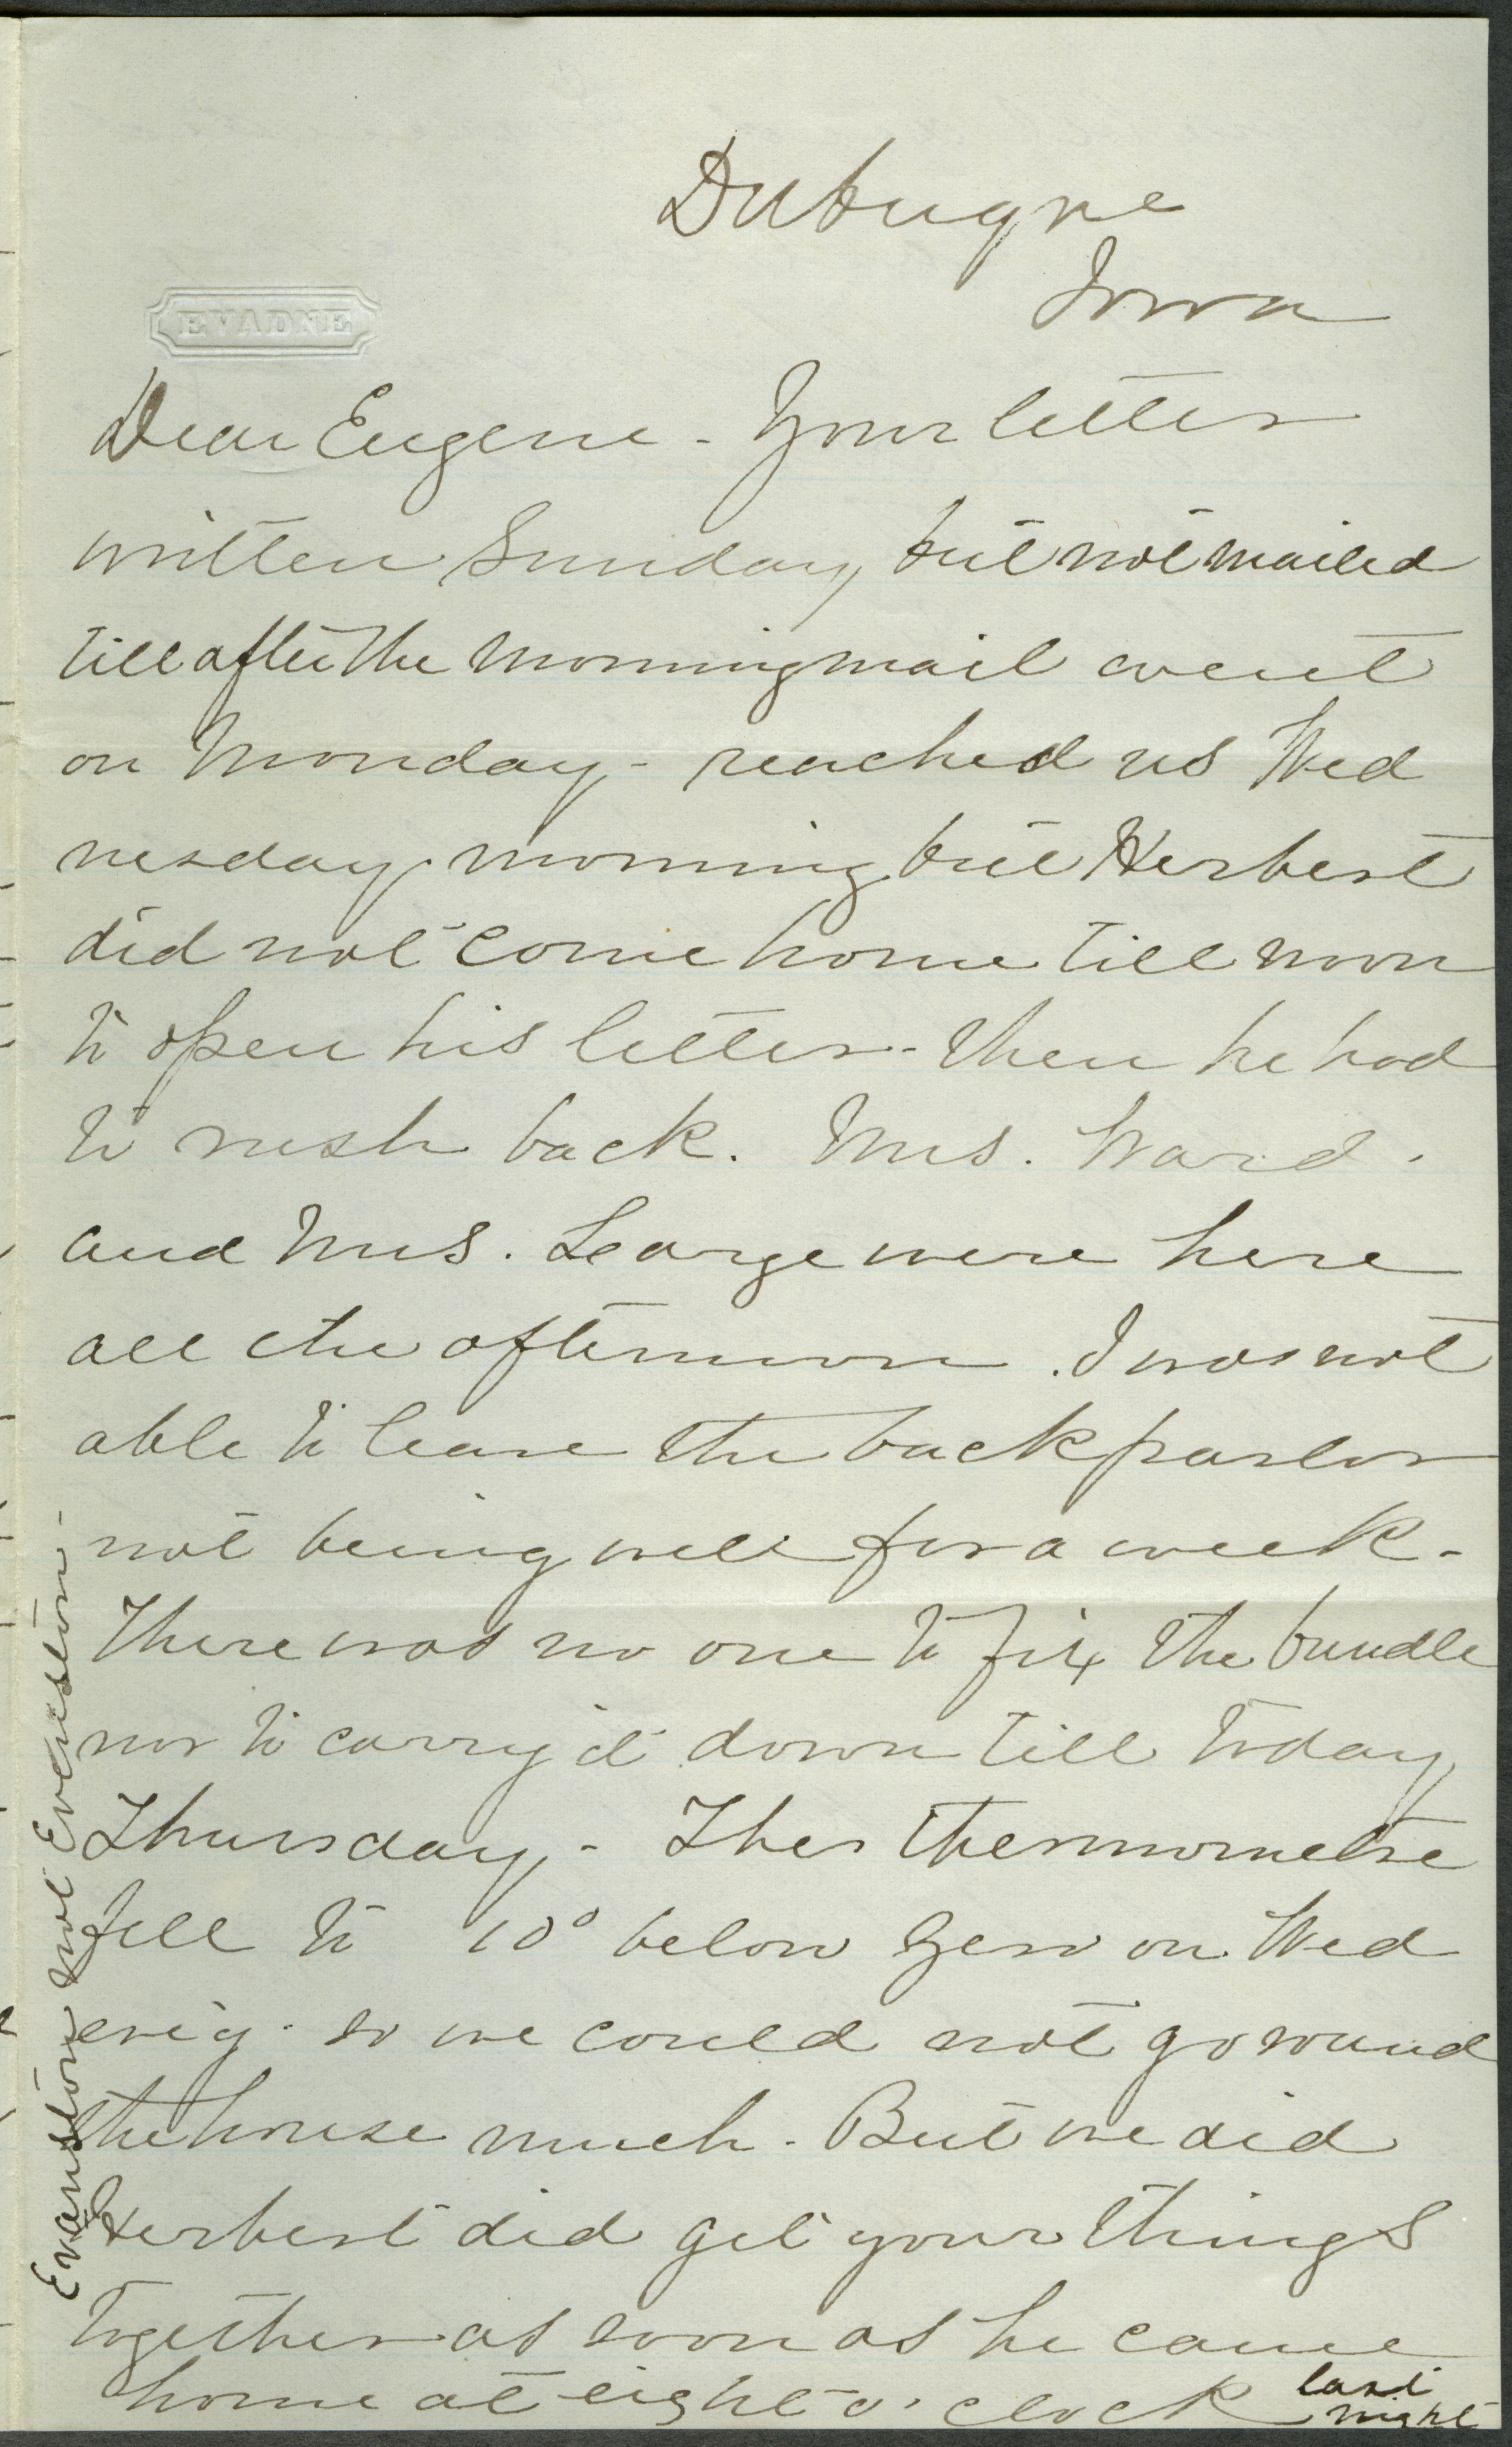 Dubuque
Iowa
EVADNE
Dear Eugene - Your letter
written Sunday, but not mailed
till after the morning mail went
on Monday - reached us Wed
nesday morning but Herbert
did not come home till noon
to open his letter - then he had
to rush back. Mrs. Ward.
and Mrs. Learge were here
all the afternoon. I was not
able to leave the back parlor
not being well for a week -
There was no one to fix the bundle
nor to carry it down till today,
Thursday, - The thermometre
fell to 10° below zero on Wed
eve'g - so we could not go round
the house much. But we did
Herbert did get your things
together as soon as he came
home at eight o'clock last
night
Evanston not Evenston -